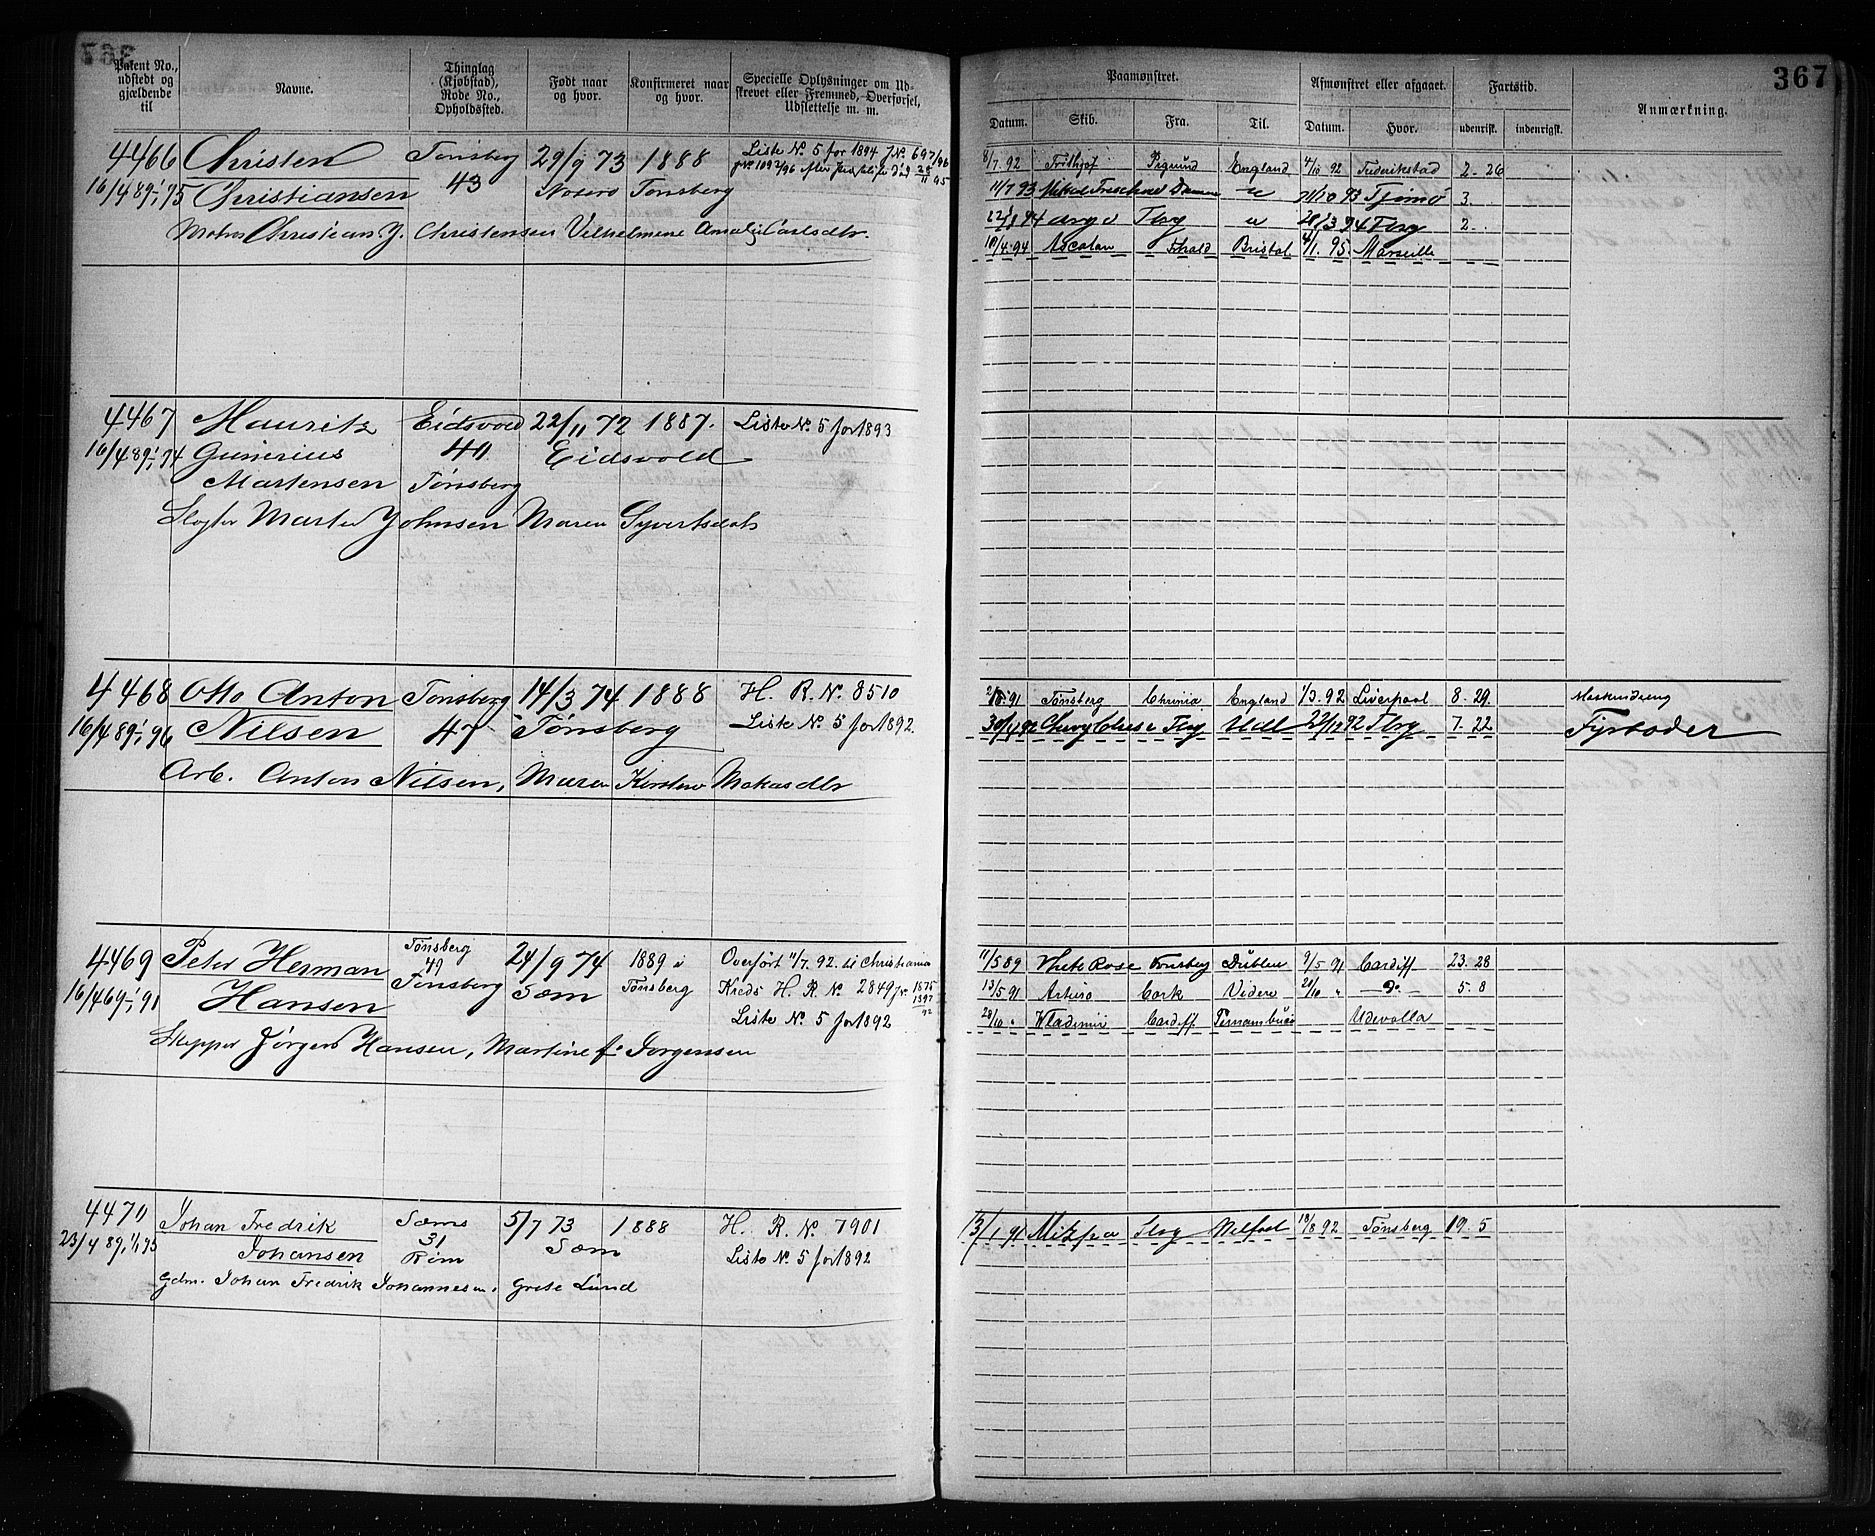 367
Patent No., udstedt og gjældende til
Navne.
Thinglag (Kjøbstad), Rode No., Opholdssted.
Født naar og hvor.
Konfirmeret naar og hvor.
Specielle Oplysninger om Udskrevet eller Fremmed, Overførsel, Udslettelse m. m.
Paamønstret.
Afmønstret eller afgaaet.
Fartstid.
Anmærkning.
Datum. Skib. Fra. Til. Datum. Hvor. udenrigsk. indenrigsk.
4466 Christen Tønsberg 29/9 73 1888 Liste No. 5 for 1894 J.No. 697/96
16/4 89 1/1 75 Christiansen 43 Tønsberg
Christian J. Christensen Vilhelmine Amalie Carlsdtr.
8/7 92 Frithjof England 4/10 92 Frederikstad 2. 26
11/7 93 Tjømø 3.
Argo Tbrg Tbrg 2.
10/4 94 Ascalon Fhald Bristol 4/1 95 Marseille
4467 Mauritz Eidsvold 22/11 72 1887. Liste No. 5 for 1893
16/4 89 1/1 74 Gunerius 40 Eidsvold
Martensen Tønsberg
Martin Johnsen Maren Syvertsdatr
4468 Otto Anton Tønsberg 14/3 74 1888 H. R. No. 8510
16/4 89 1/1 96 Nilsen 47 Tønsberg Liste No. 5 for 1892.
Arb. Anton Nilsen, Maren Kirstine
Tønsberg Chrinia England 1/3 92 Liverpool 8. 29. Maskindreng
Tbrg Udl Tbrg 7. 22 Fyrbøder
4469 Peter Herman Tønsberg 24/9 74 1889 i Overført 11/7 92. til Christiania
16/4 89 1/1 91 Hansen 49 Tønsberg Sæm Tønsberg Kreds H. R. No. 2849 J.No. 1875 1397 92
Liste No. 5 for 1892
Jørgen Hansen, Martine f. Jørgensen
11/5 89 White Rose Tønsberg Dublin 9/5 91 Cardiff 23. 28
13/5 91 Arturo Cork Videre 20/10 " Do 5. 8
28/10 " Wladimir Cardiff Pernambuco Udevalla
4470 Johan Fredrik Sæms 5/7 73 1888 H. R. No. 7901
23/4 89 1/1 95 Johansen 31 Sæm Liste No. 5 for 1892
Gdm. Johan Fredrik Johannesen, Grete Lund
13/1 91 Mizpa Tbrg 18/8 92 Tønsberg 19. 5